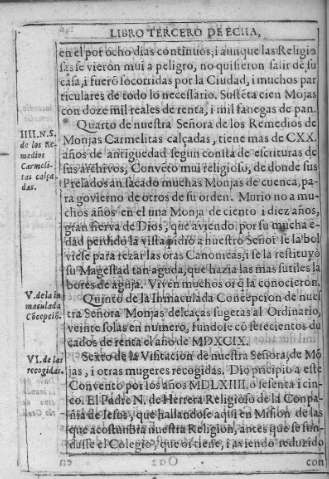 LIBRO TERCERO DE ECIJA,
en el por ocho dias continuos, i aunque las Religio
sas se vieron mui a peligro, no quisieron salir de su
casa, i fuerõ socorridas por la Ciudad, i muchos par
ticulares de todo lo necessario. Sustẽta cien Mojas
con doze mil reales de renta, i mil fanegas de pan.
IIII. N. S.
de los Re-
medios
Carmeli-
tas calça-
das.
Quarto de nuestra Señora de los Remedios de
Monjas Carmelitas calçadas, tiene mas de CXX.
años de antiguedad segun consta de escrituras de
sus archivos, Convẽto mui religioso, de donde sus
Prelados an sacado muchas Monjas de cuenca, pa
ra govierno de otros de su orden. Murio no a mu
chos años en el una Monja de ciento i diez años,
gran sierva de Dios, que aviendo por su mucha e-
dad perdido la vista pidio a nuestro Señor se la bol
viese para rezar las oras Canonicas, i se la restituyò
su Magestad tan aguda, que hazia las mas sutiles la
bores de aguja. Viven muchos q̃ la conocieron.
V. de la in
maculada
Cõcepciõ.
Quinto de la Inmaculada Concepcion de nues
tra Señora Monjas descalças sugetas al Ordinario,
veinte solas en numero, fundose cõ trecientos du
cados de renta el año de MDXCIX.
VI. de las
recogidas.
Sexto de la Visitacion de nuestra Señora, de Mõ
jas, i otras mugeres recogidas. Dio prĩcipio a este
Convento por los años MDLXIIII. o sesenta i cin-
co. El Padre N. de Herrera Religioso de la Conpa
ñia de Iesus, que hallandose aqui en Mision de las
que acostunbra nuestra Religion, antes que se fun-
dasse el Colegio, que os tiene, i aviendo reduzido
con